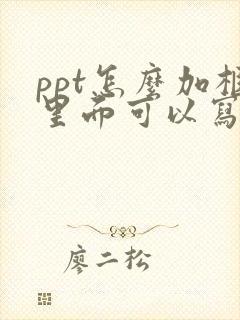 ppt怎麼加框
里面可以寫
廖二松